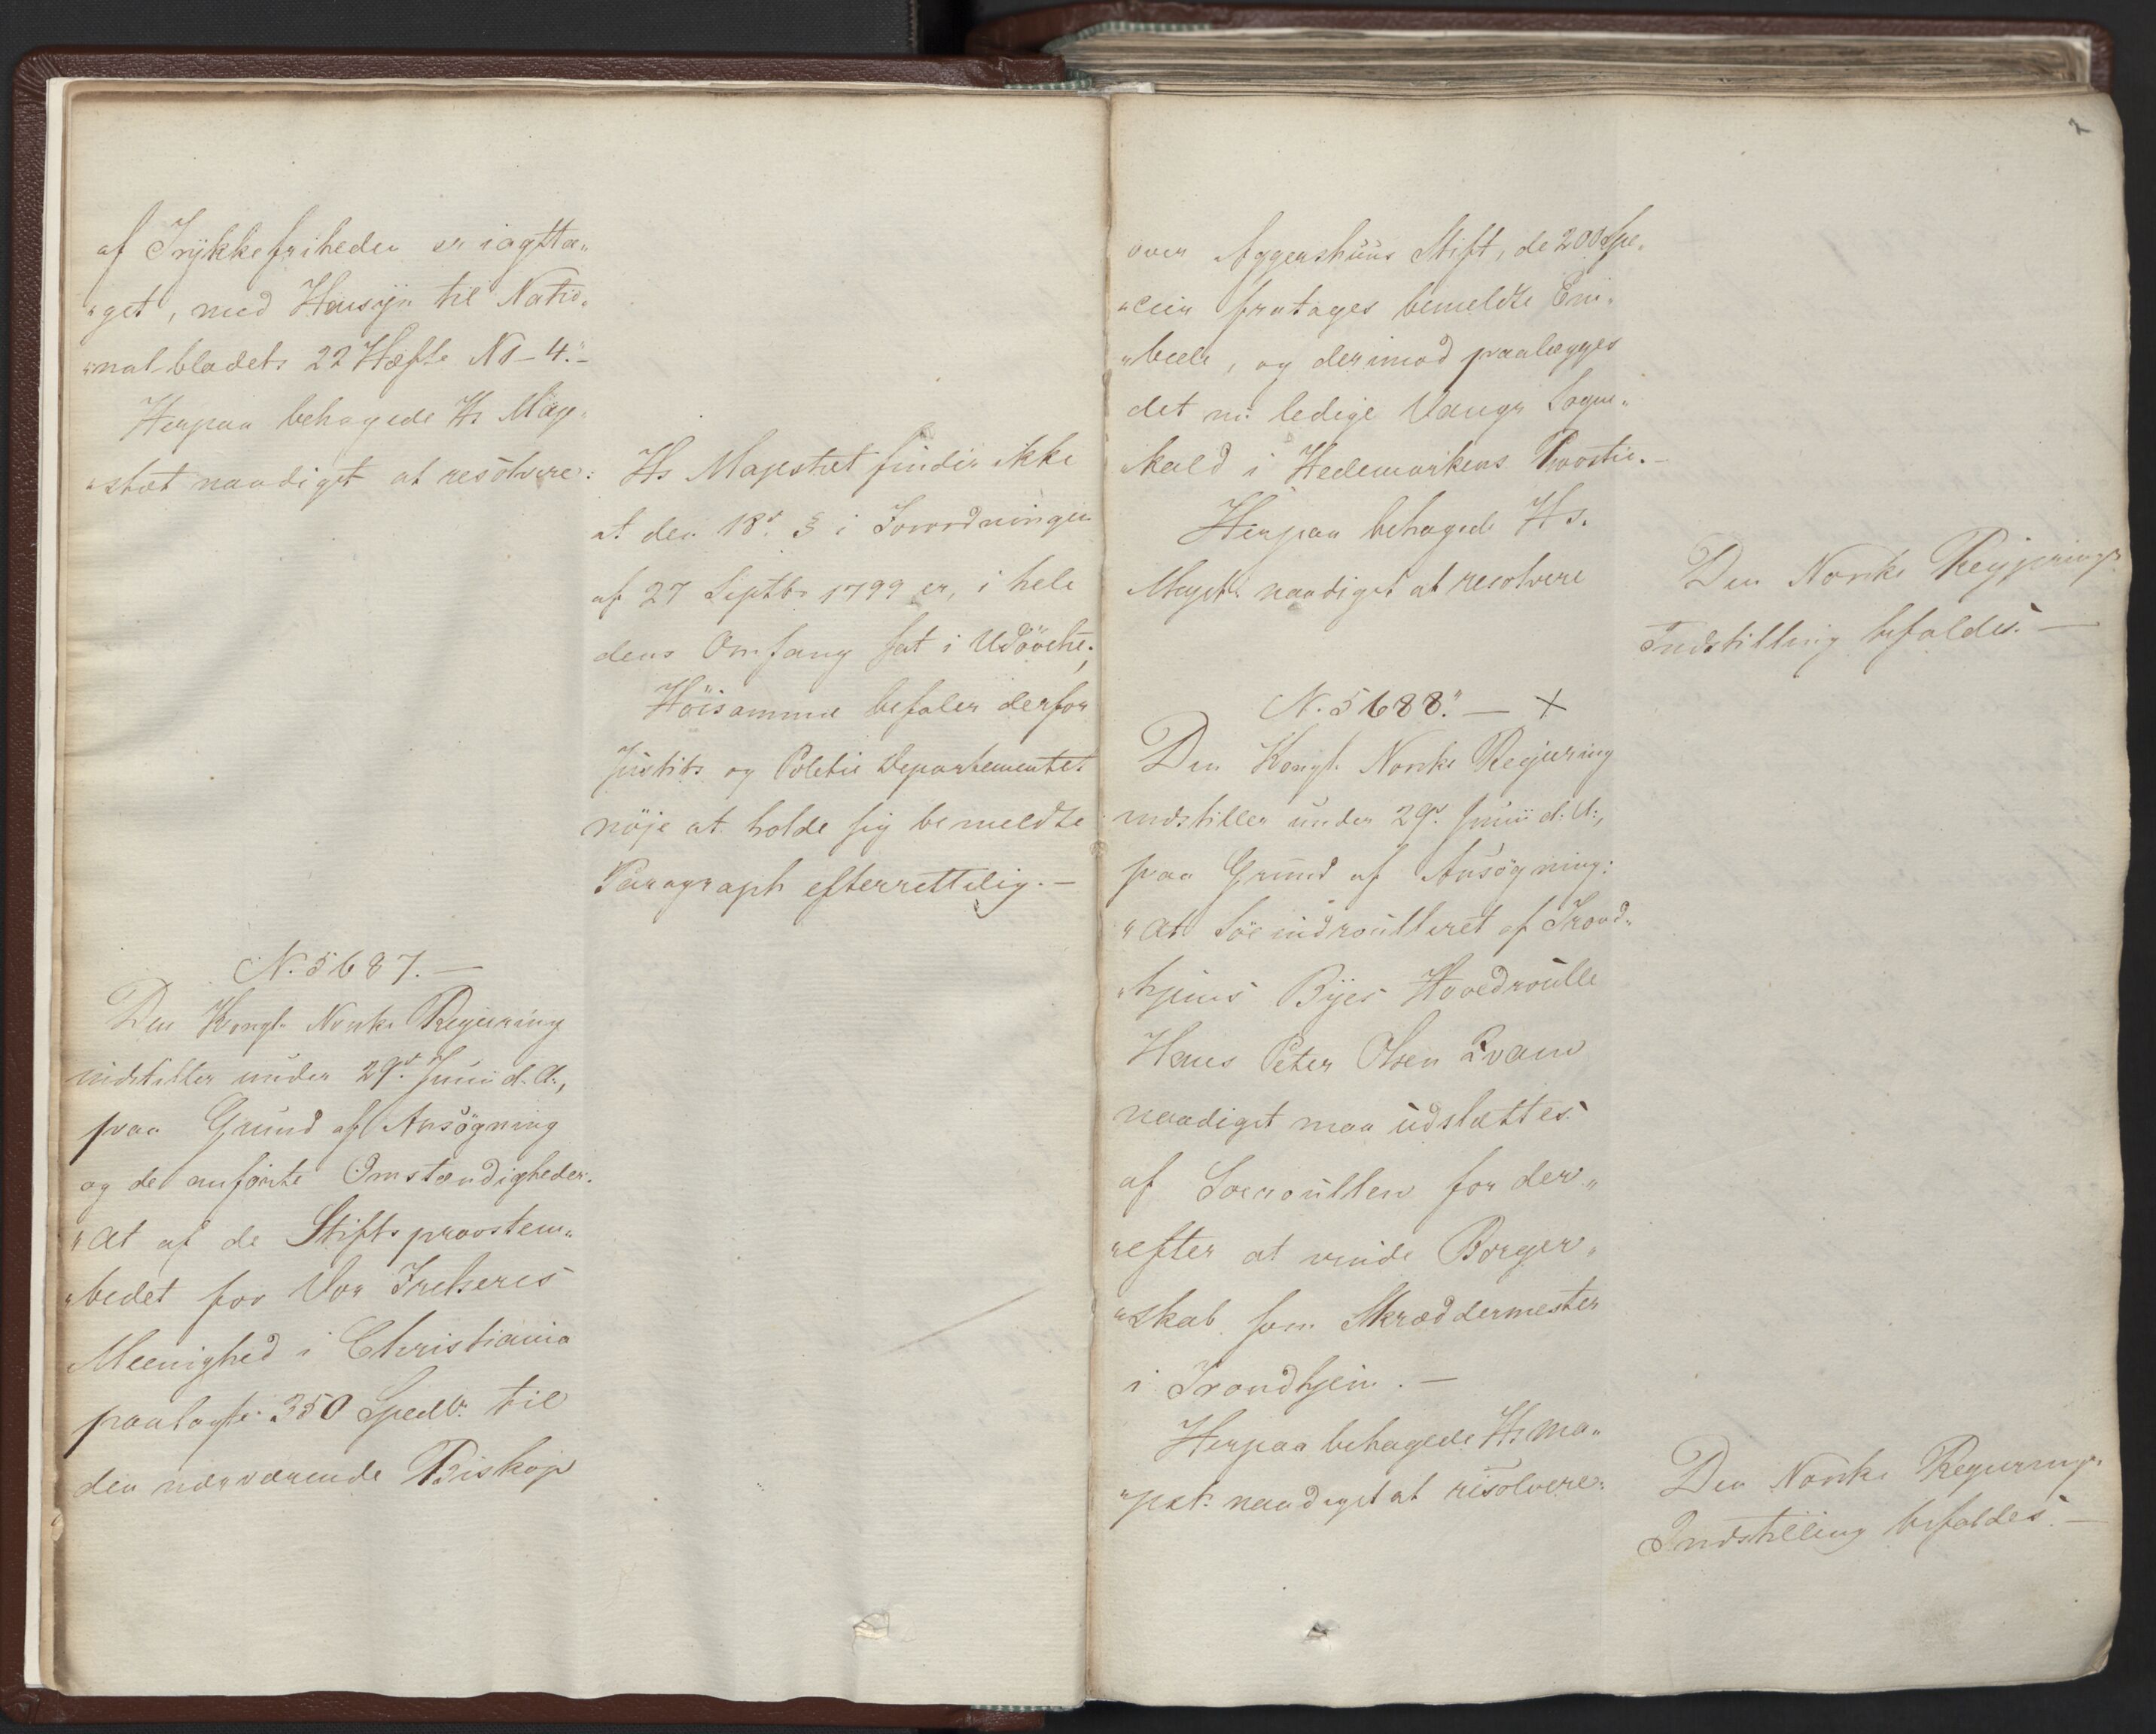 af Trykkefriheden er iagtta„
„get, med Hensÿn til Natio„
„nal-bladets 22 Hæfte No 4."-
Herpaa behagede Hs Maje„
„stæt naadigst at resolvere:
Hs Majestæt finder ikke
at den 18de § i Forordningen
af 27 Septbr 1799 er, i hele
dens Omfang sat i Udövelse;
Höisamme befaler derfor
Justits og Politie Departementet
nöje at holde sig bemeldte
Paragraph efterrettelig.-
N. 5687.-
Den Kongl. Norske Regjering
indstiller under 29de Junii d. A.,
paa Grund af Ansögning
og de anförte Omstændigheder:
„at af de Stiftsprovstem„
„bedet for Vor Frelseres
Meenighed i Christiania
paalagte 350 Spedlr. til
den nærværende Biskop
2
over Aggershuus Stift, de 200 Spe„
„cier fratages bemeldte Em„
„bede, og derimod paalægges
det nu ledige Vangs Sogne„
kald i Hedemarkens Provstie.-
Herpaa behagede Hs.
Majst. naadigst at resolvere
Den Norske Regjerings
Indstilling bifaldes.-
N. 5688."- X
Den Kongl. Norske Regjering
indstiller under 29de Junii d. A.,
paa Grund af Ansögning:
„at Söe indroulleret af Trond„
„hjems Byes Hovedroulle
Hans Peter Olsen
naadigst maa udslættes
af Söeroullen for der„
„efter at vinde Borger„
„skab som Skræddermester
i Trondhjem.-
Herpaa behagede Hs Ma„
„jest. naadigst at resolvere:
Den Norske Regjerings
Indstilling bifaldes.-